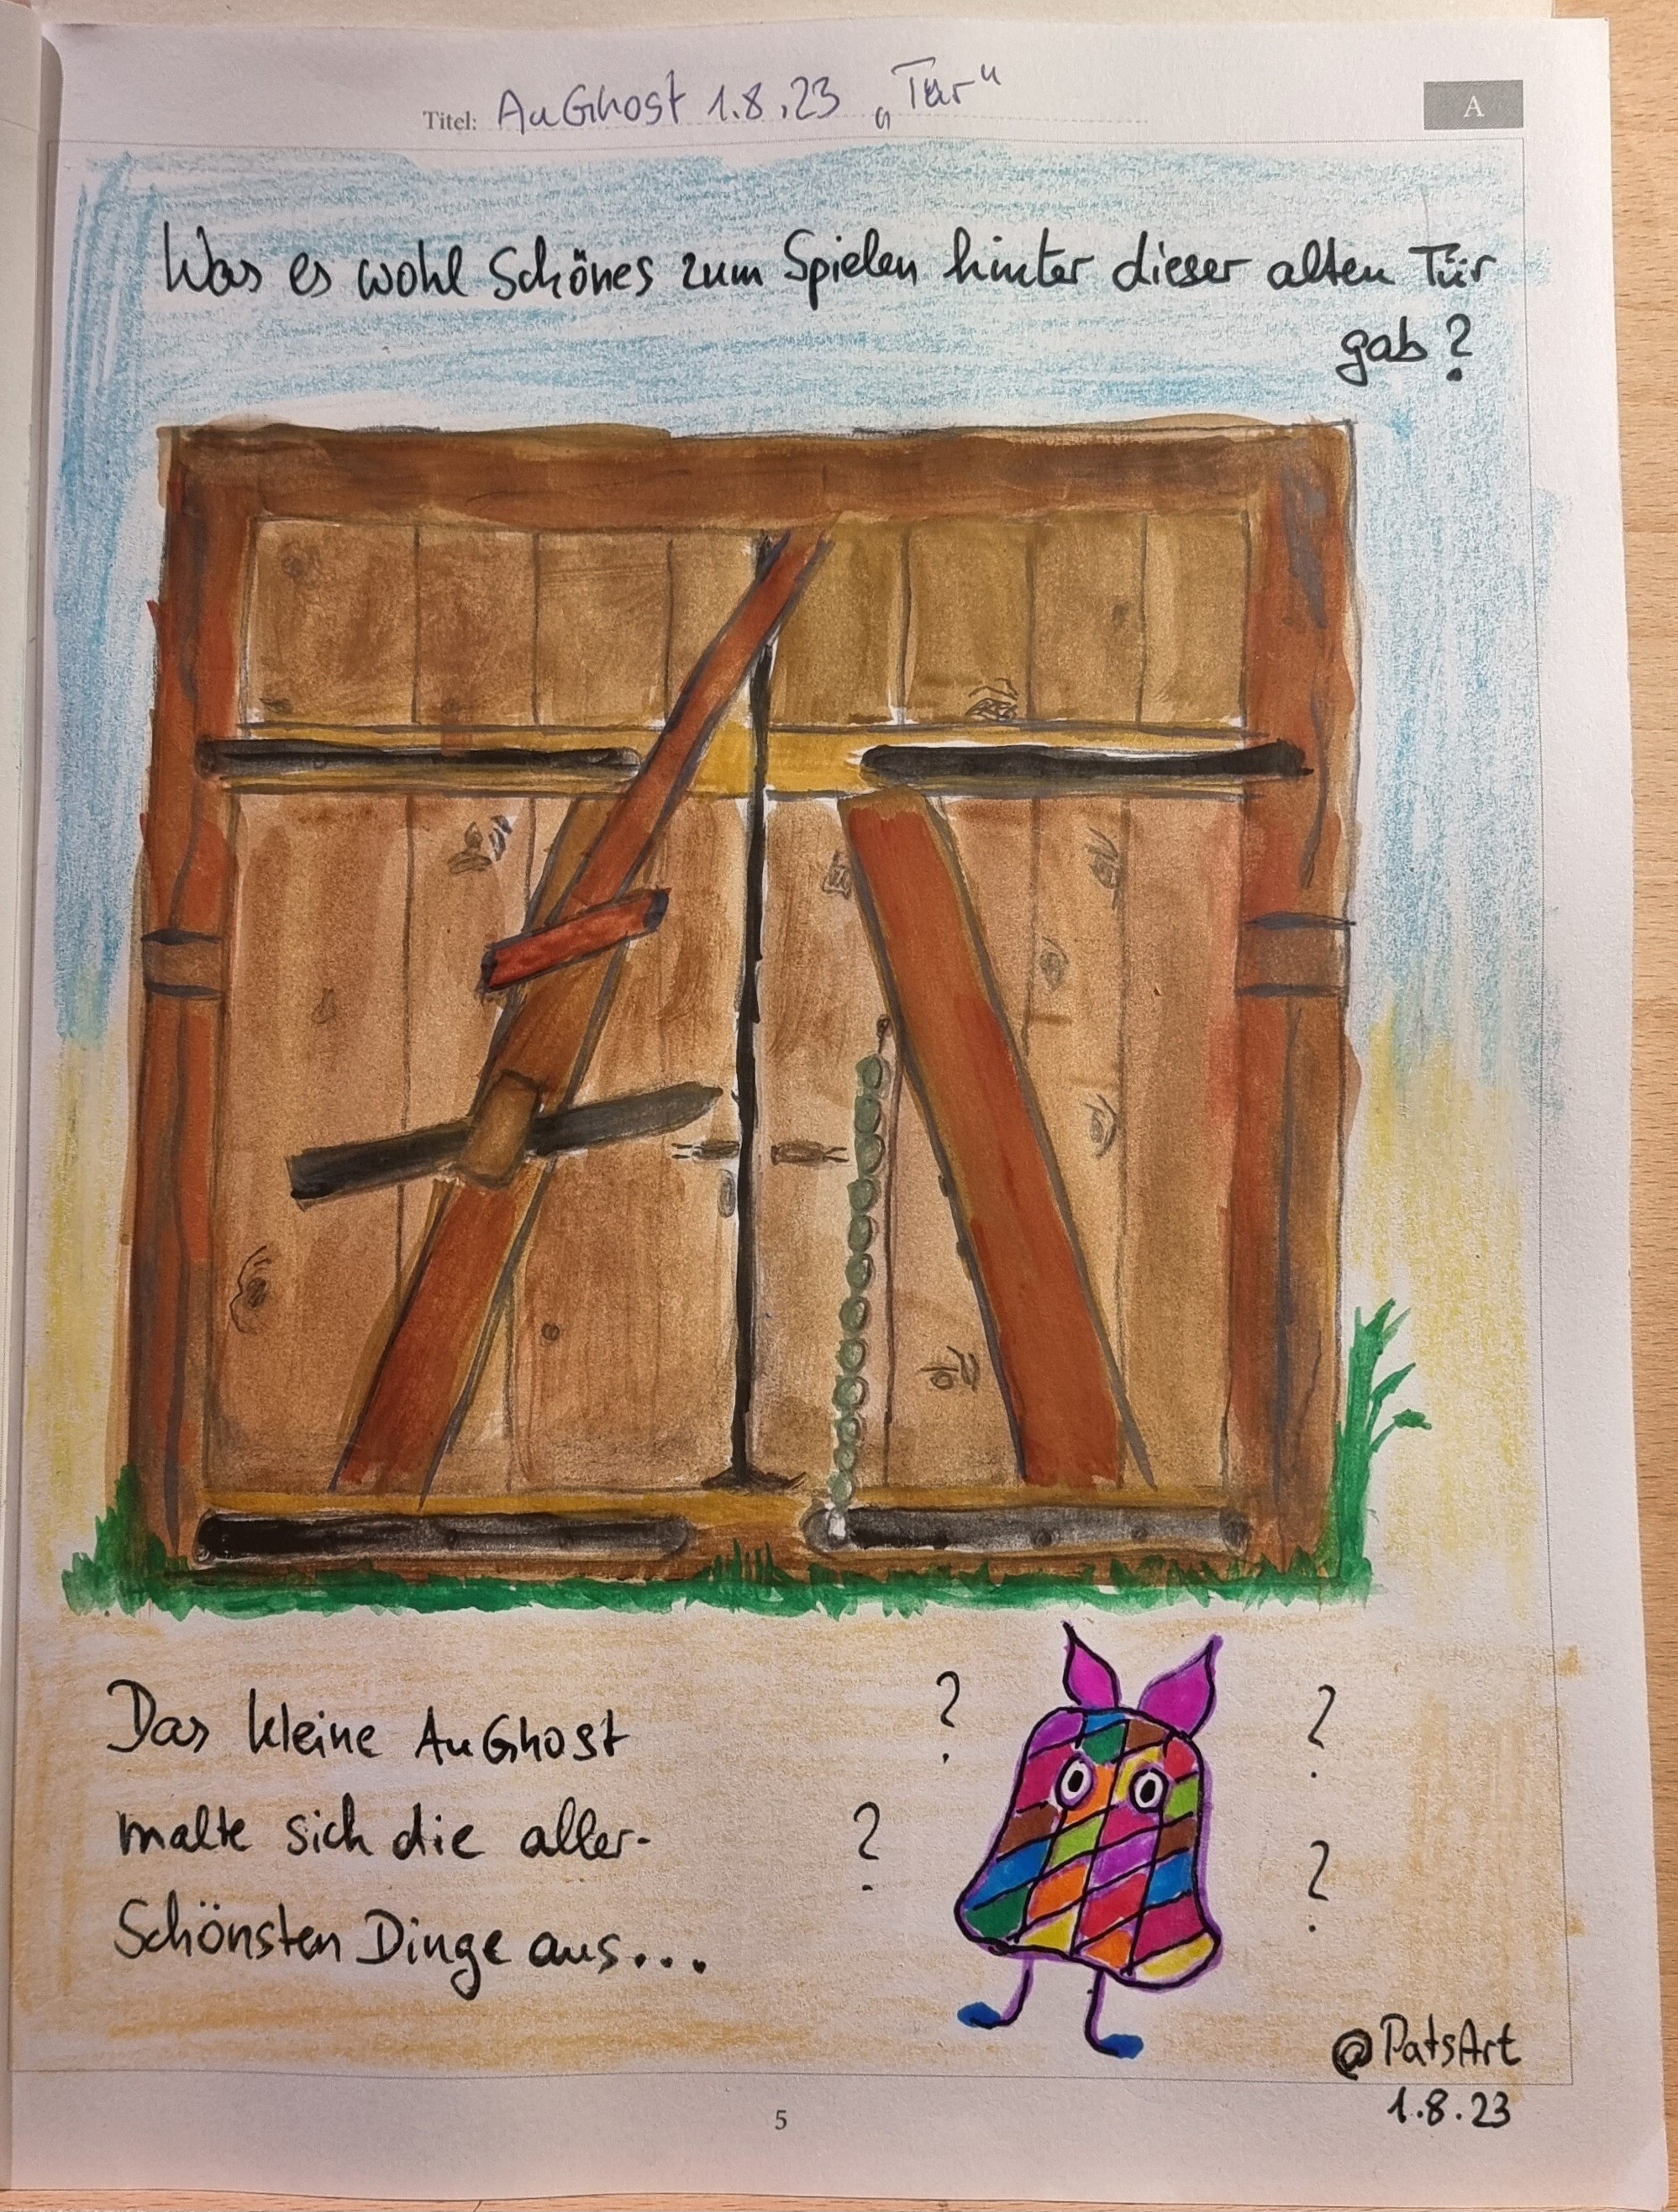 Titel: AuGhost 1.8.23 „Tür“
A
Was es wohl Schönes zum Spielen hinter dieser alten Tür
gab?
Das kleine AuGhost
malte sich die aller-
Schönsten Dinge aus...
? ?
? ?
@PatsArt
1.8.23
5